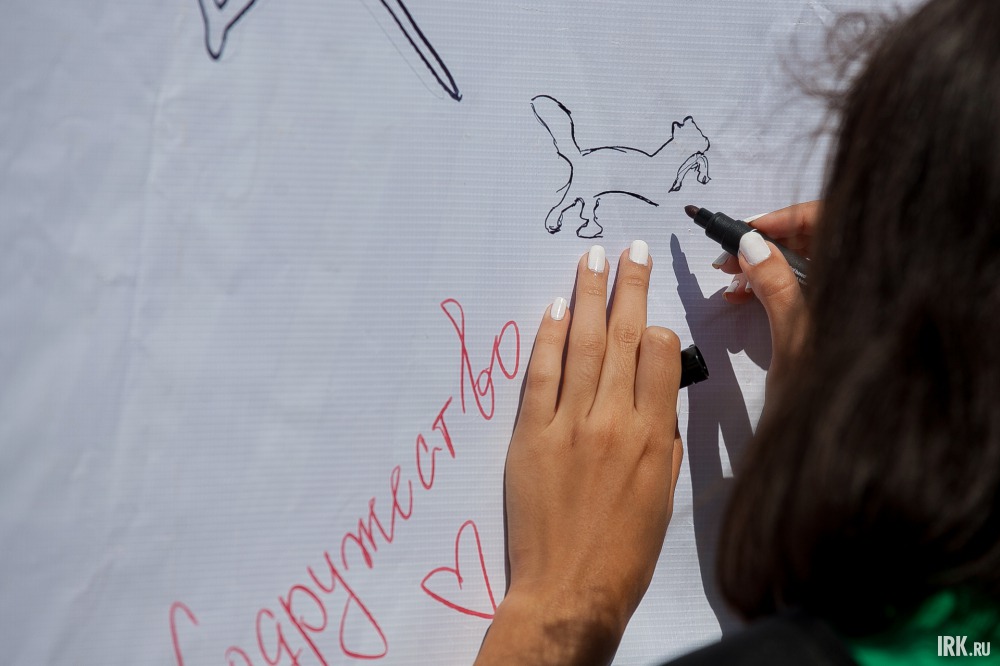 Содружество
IRK.ru